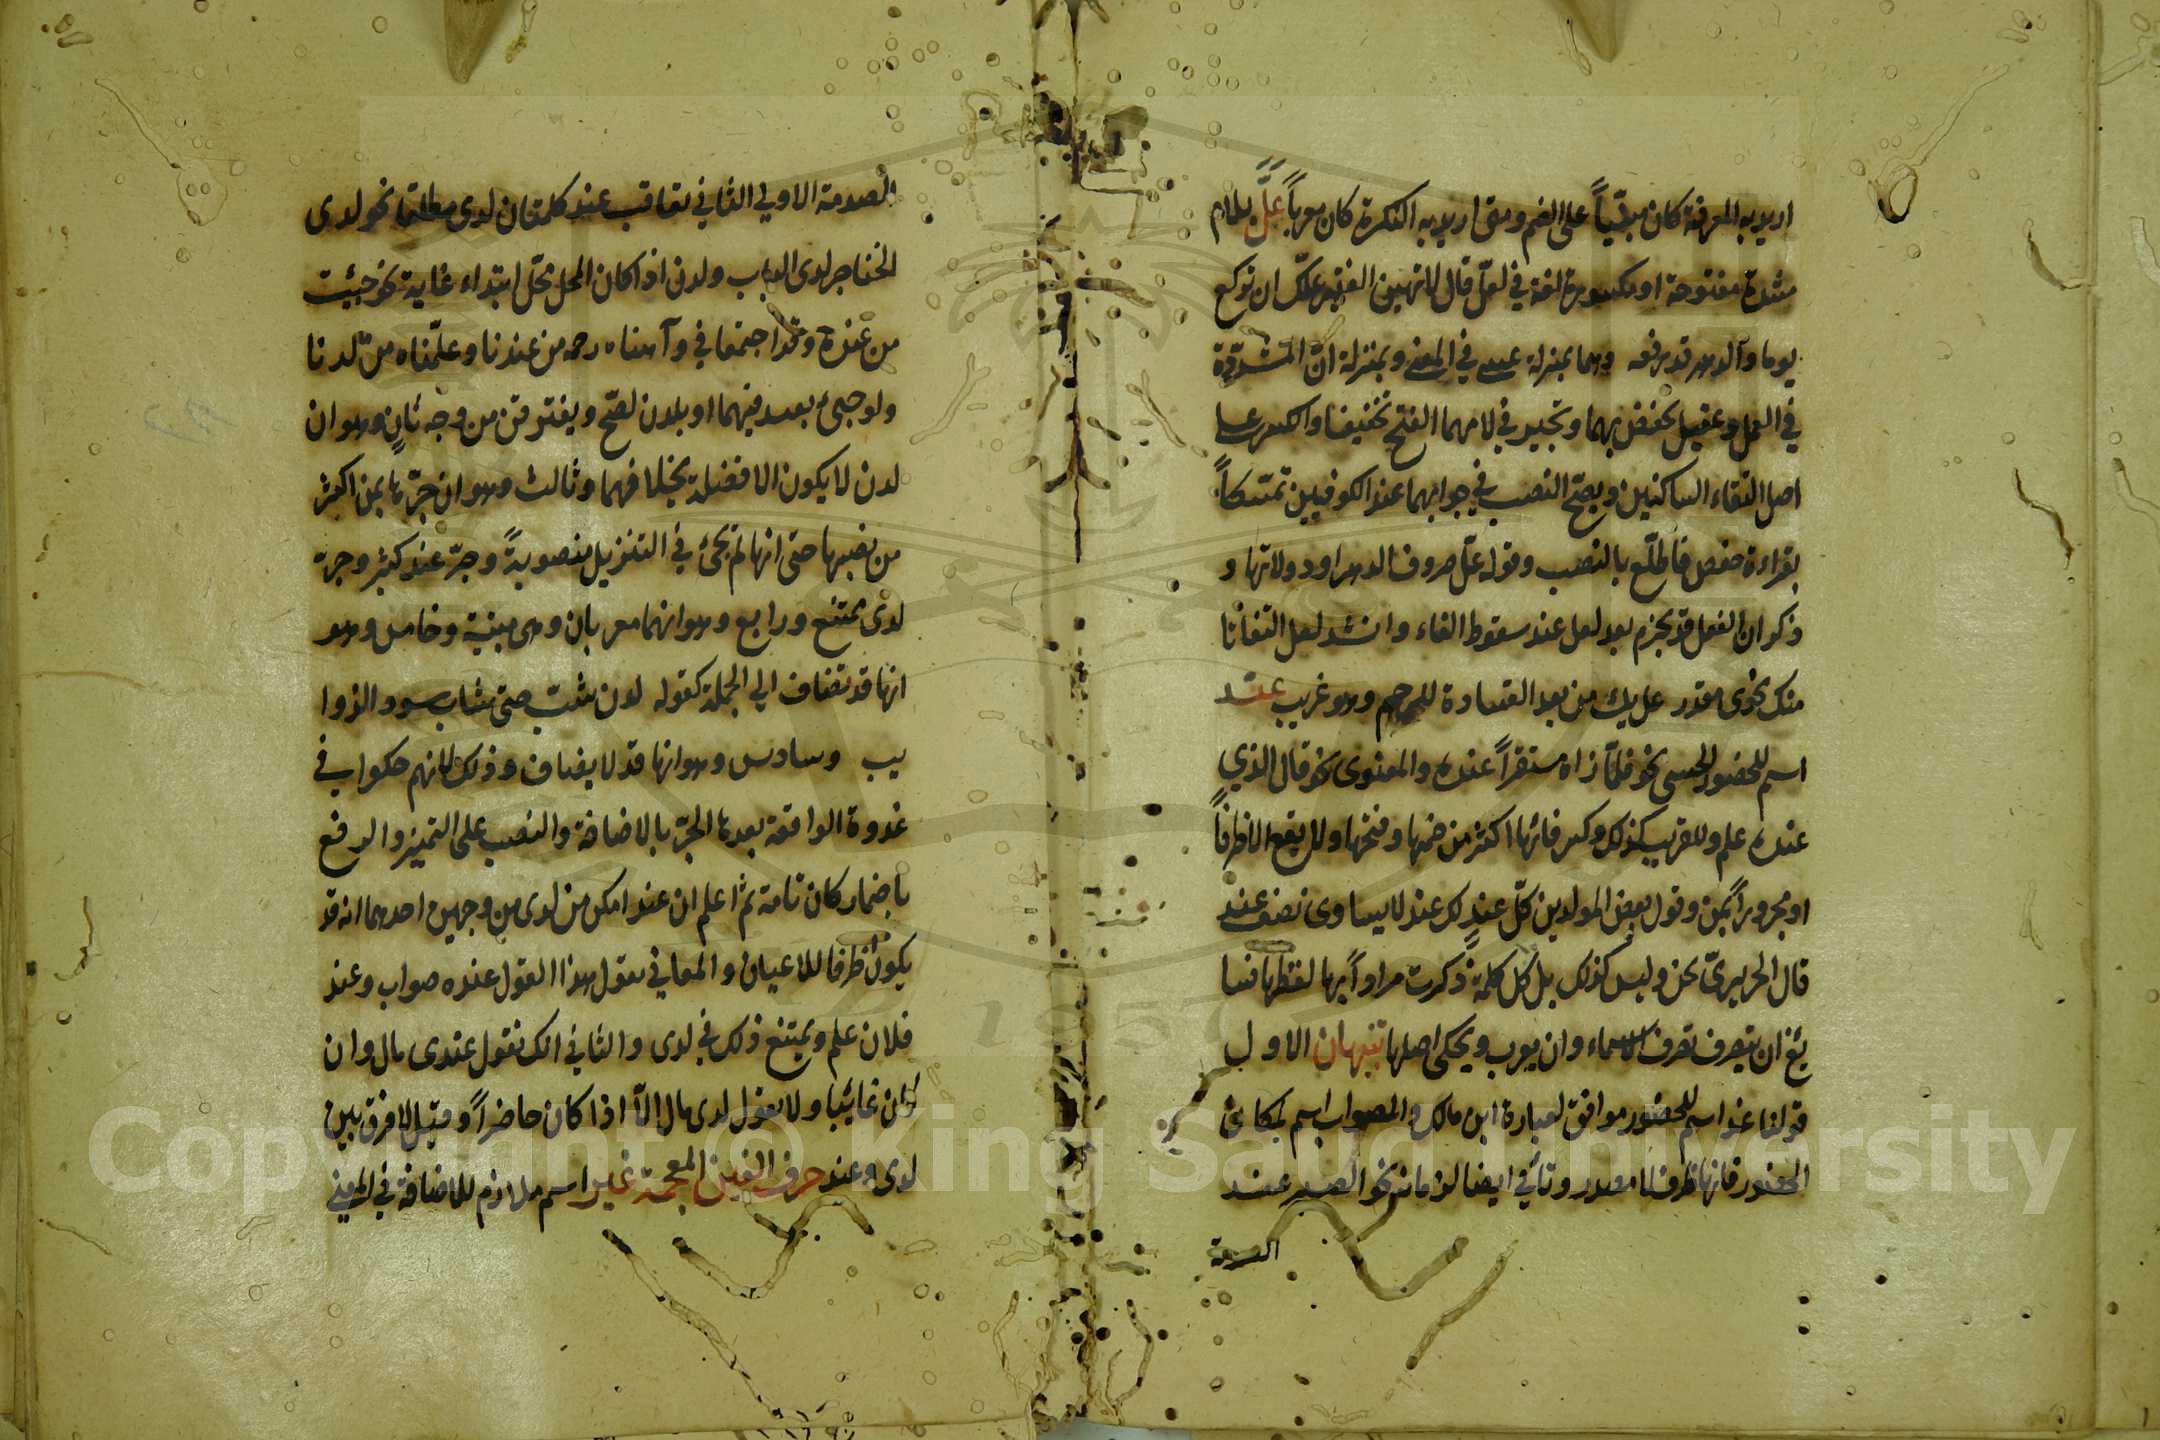 اريد به المعرفة كان مبنيّاً على الضم ومتى اريد به النكرة كان معرباً علَّ بلام
مشددة مفتوحة او مكسورة لغة في لعلّ قال لا تهين الفقير علّك ان تركع
يوما والدهر قد رفعه وهما بمنزلة عسى في المعنى وبمنزلة انّ المشدّدة
في العمل وعقيل تخفض بهما وتجيز في لامهما الفتح تخفيفا والكسر على
اصل التقاء الساكنين ويصحّ النصب في جوابهما عند الكوفيين تمسّكاً
بقراءة حفص فاطّلع بالنصب وقوله علّ صروف الدهر او دولاتها و
ذكر ان الفعل قد يجزم بعد لعل عند سقوط الفاء وانشد لعل التفاتا
منك نحوى مقدر عل بك من بعد القساوة للرحم وهو غريب عند
اسم للحضور الحسى نحو فلمّا رآه مستقراً عنده والمعنوى نحو قال الذي
عنده علم وللقرب كذلك وكسر فائها اكثر من ضمها وفتحها ولا يقع الا ظرفاً
او مجروراً بمن وقول بعض المولدين كلّ عندٍ لك عند لا يساوى نصف عند
قال الحريريّ لحن وليس كذلك بل كل كلمة ذكرت مراداً بها لفظها فسا
ئغ ان يتصرف تصرف الاسماء وان يعرب ويحكى اصلها تنبيهان الاول
قولنا عند اسم للحضور موافق لعبارة ابن مالك والصواب اسم لمكان
الحضور فانها ظرف لا مصدر وتأتي ايضا لزمانه نحو الصبر عند
الصدمة
الصدمة الاولى الثاني تعاقب عند كلمتان لدى مطلقا نحو لدى
الحناجر لدى الباب ولدن اذا كان المحل محل ابتداء غاية نحو جئت
من عنده وقد اجتمعا في وآتيناه رحمة من عندنا وعلّمناه من لدنا
ولو جيئ بعند فيهما او بلدن لصحّ ويفترقن من وجه ثانٍ وهو ان
لدن لا يكون الا فضلة بخلافهما وثالث وهو ان جرّها بمن اكثر
من نصبها حتى انها لم تجئ في التنزيل منصوبةً وجرّ عند كثير وجرّ
لدى ممتنع ورابع وهو انهما معربان وهى مبنية وخامس وهو
انها قد تضاف الى الجملة كقوله لدن شبّ حتى شاب سود الذوا
يب وسادس وهو انها قد لا يضاف وذلك لانهم حكوا في
غدوة الواقعة بعدها الجرّ بالاضافة والنصب على التميز والرفع
باضمار كان تامة ثم اعلم ان عند امكن من لدى من وجهين احدهما انه قد
يكون ظرفا للاعيان والمعاني تقول هذا القول عنده صواب وعند
فلان علم ويمتنع ذلك في لدى والثاني انك تقول عندى مال وان
كان غائبا ولا تقول لدى مال الّا اذا كان حاضراً وقيل لا فرق بين
لدى وعند حرف الغين المعجمة غير اسم ملازم للاضافة في المعنى
Copyright © King Saud University
1957